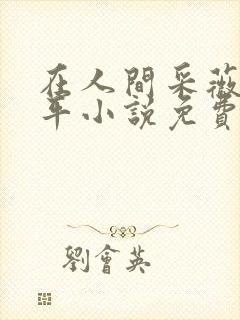 在人間采薇
年小說免費
劉會英